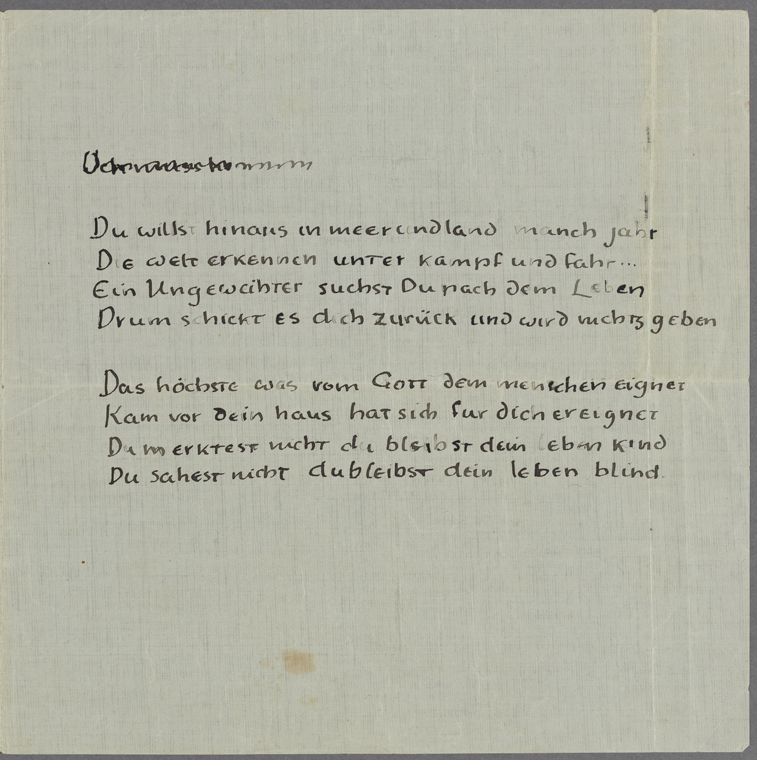 Du willst hinaus in meer und land manch jahr
Die welt erkennen unter kampf und fahr...
Ein Ungeweihter suchst Du nach dem Leben
Drum schickt es dich zurück und wird nichts geben
Das höchste was vom Gott dem menschen eignet
Kam vor dein haus hat sich fur dich ereignet
Du merktest nicht du bleibst dein leben kind
Du sahest nicht du bleibst dein leben blind.